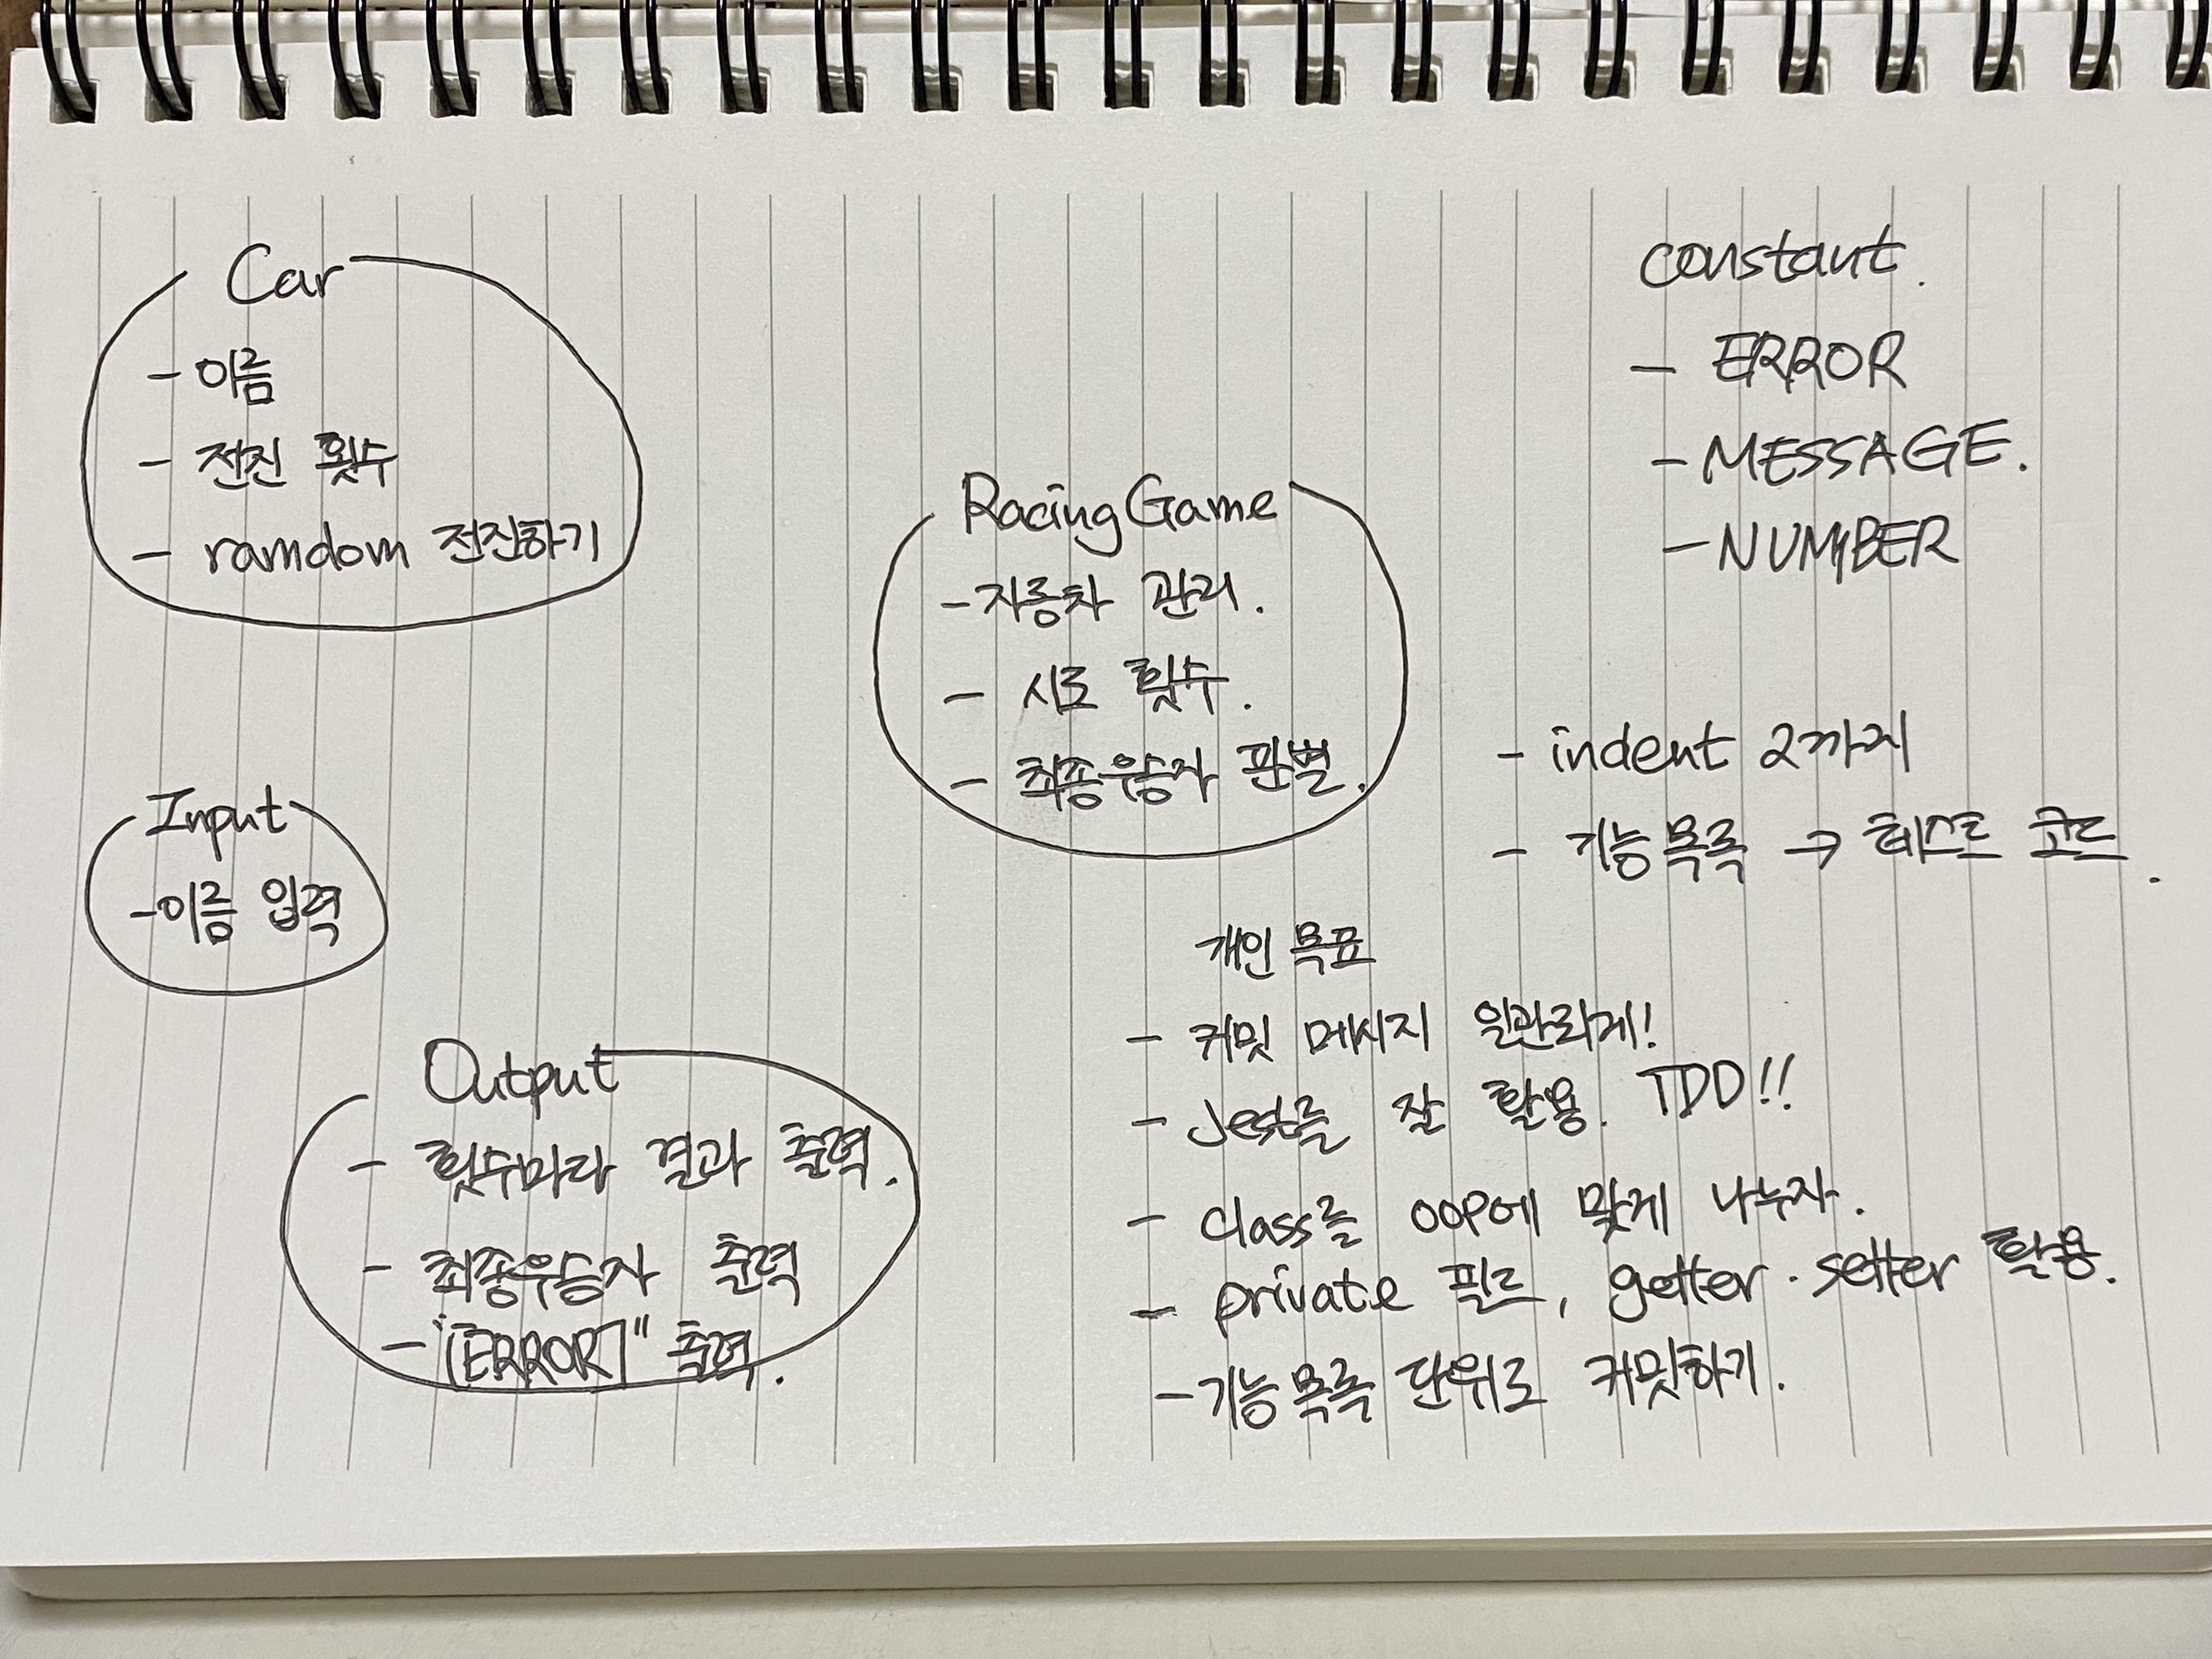 Car
- 이름
- 전진 횟수
- ramdom 전진하기
Input
- 이름 입력
Output
- 횟수마다 결과 출력.
- 최종우승자 출력
- "[ERROR]" 출력.
Racing Game
- 자동차 관리.
- 시도 횟수.
- 최종우승자 판별.
constant.
- ERROR
- MESSAGE.
- NUMBER
- indent 2까지
- 기능목록 → 테스트 코드.
개인 목표
- 커밋 메시지 일관되게!
- Jest를 잘 활용. TDD!!
- class를 OOP에 맞게 나누자.
- private 필드, getter · setter 활용.
- 기능목록 단위로 커밋하기.